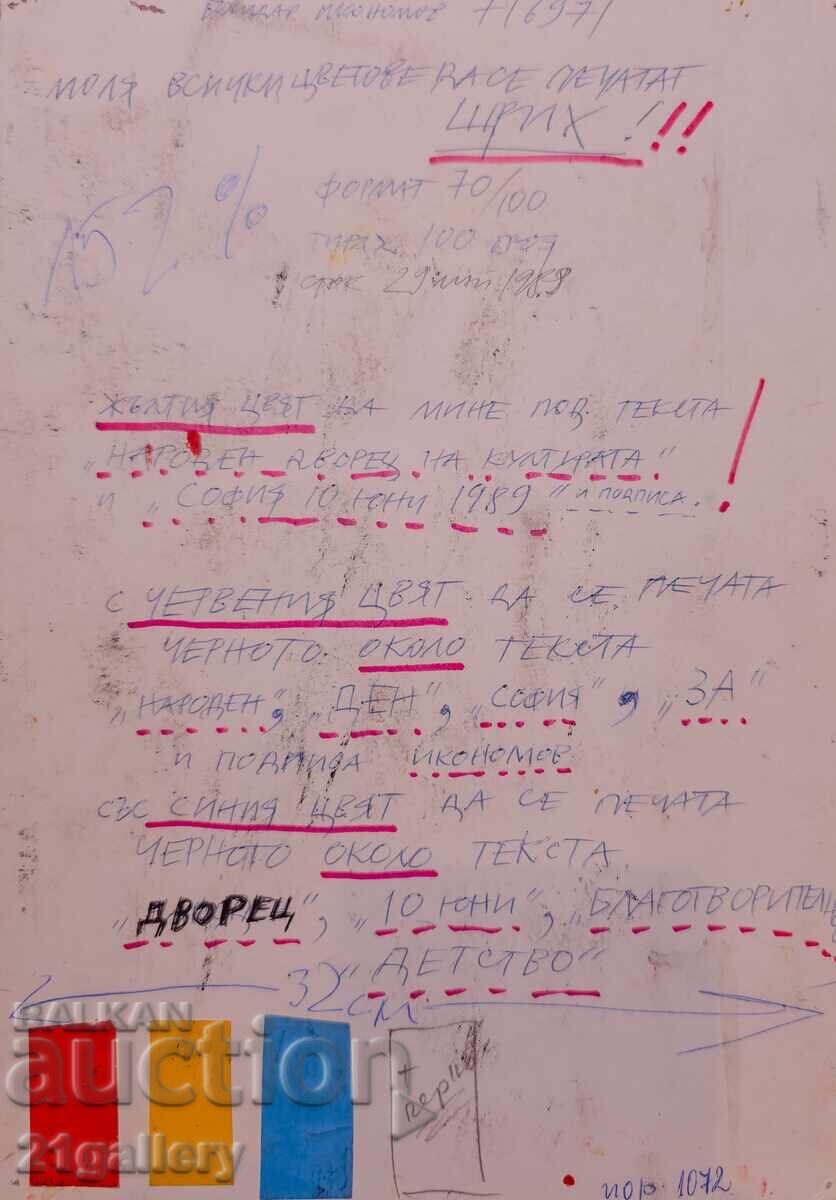 Божидар Икономов 71697
МОЛЯ ВСИЧКИ ЦВЕТОВЕ ДА СЕ ПЕЧАТАТ
ЩРИХ !!!
152 %
ФОРМАТ 70/100
ТИРАЖ 100 броя
срок 29 май 1989
ЖЪЛТИЯ ЦВЯТ ДА МИНЕ ПОД ТЕКСТА
„НАРОДЕН ДВОРЕЦ НА КУЛТУРАТА"
И „СОФИЯ 10 ЮНИ 1989" И ПОДПИСА. !
С ЧЕРВЕНИЯ ЦВЯТ ДА СЕ ПЕЧАТА
ЧЕРНОТО ОКОЛО ТЕКСТА
„НАРОДЕН", „ДЕН", „СОФИЯ", „ЗА"
И ПОДПИСА ИКОНОМОВ
СЪС СИНИЯ ЦВЯТ ДА СЕ ПЕЧАТА
ЧЕРНОТО ОКОЛО ТЕКСТА
„ДВОРЕЦ", „10 ЮНИ", „БЛАГОТВОРИТЕЛ
„ДЕТСТВО"
32 см
+
черно
пор. 1072
BALKAN
auction
21gallery